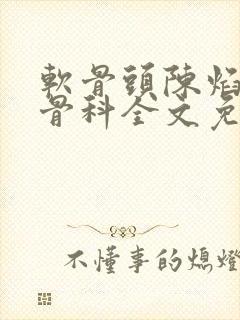 軟骨頭陳焰
骨科全文免
不懂事的熄燈